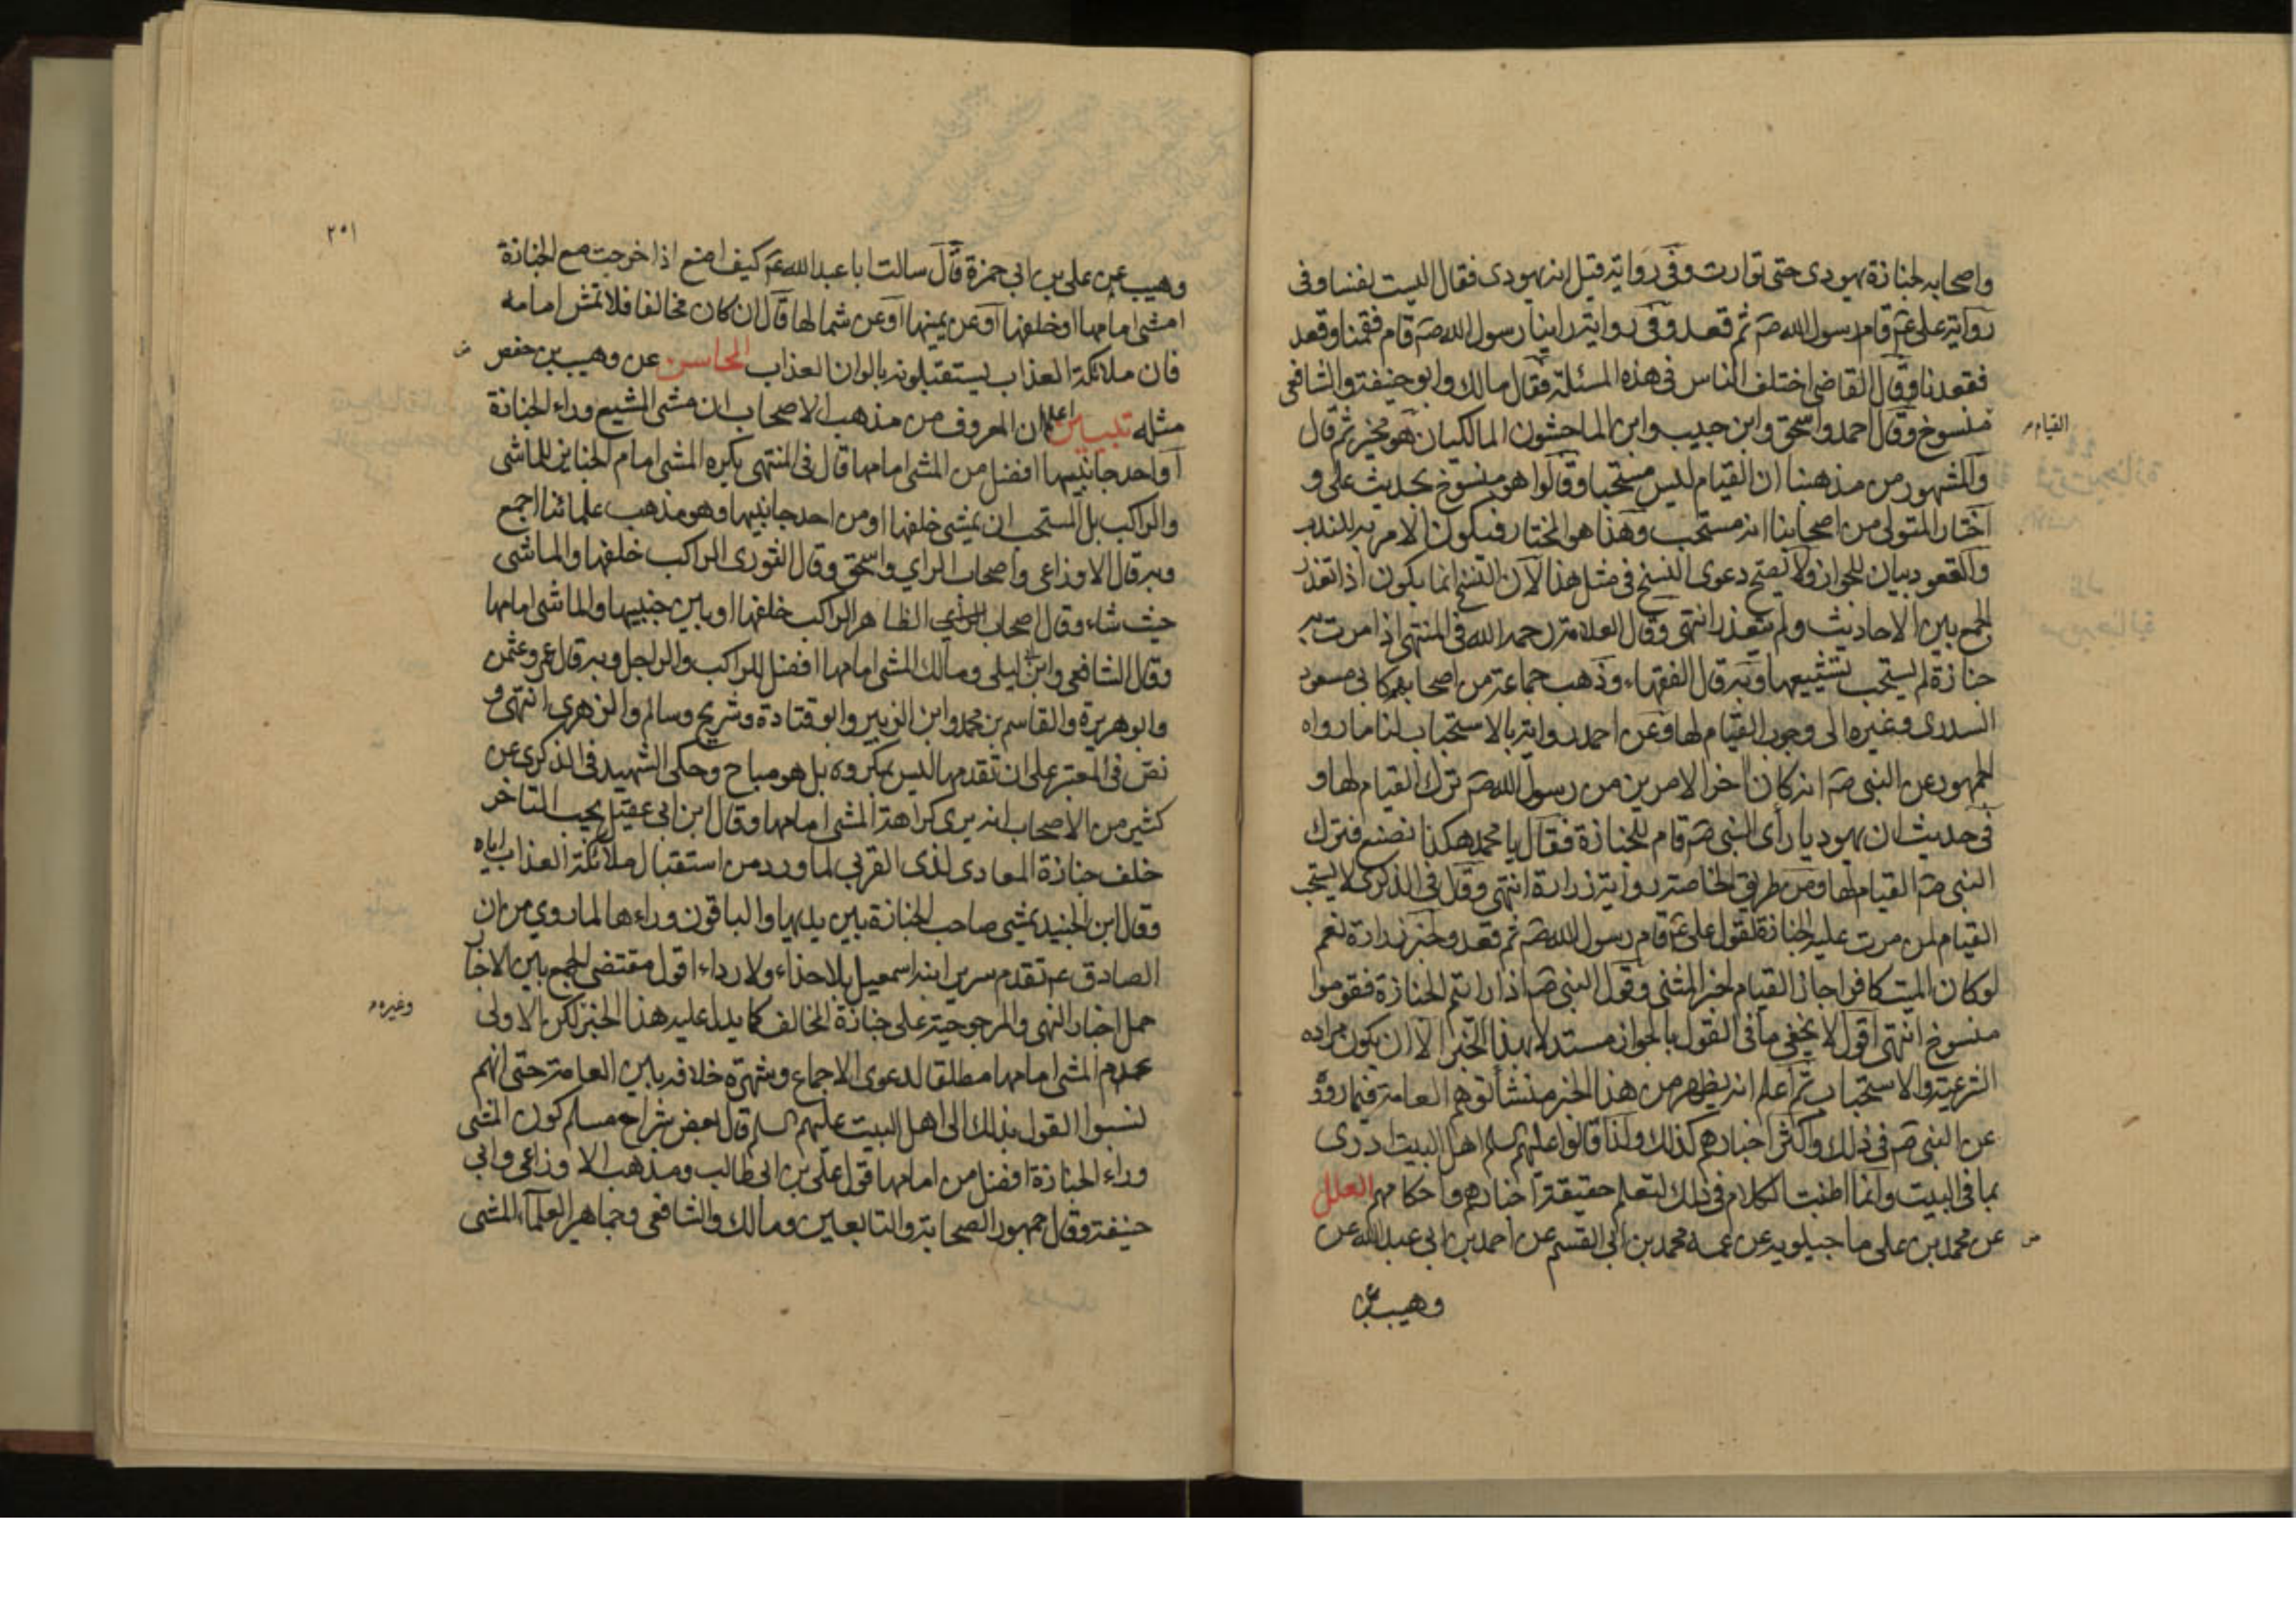 واصحابه لجنازة يهودى حتى توارت وفى رواية قيل انه يهودى فقال اليست نفسا وفى
رواية على عم قام رسول الله صم ثم قعد وفى رواية راينا رسول الله صم قام فقمنا وقعد
فقعدنا وقال القاضى اختلف الناس فى هذه المسئلة فقال مالك وابو حنيفة والشافعى
القيام
منسوخ وقال احمد واسحق وابن حبيب وابن الماجشون المالكيان هو مخير ثم قال
والمشهور من مذهبنا ان القيام ليس مستحبا وقالوا هو منسوخ بحديث على و
اختار المتولى من اصحابنا انه مستحب وهذا هو المختار فيكون الامر به للندب
والقعود بيان للجواز ولا تصح دعوى النسخ فى مثل هذا لان النسخ انما يكون اذا تعذر
الجمع بين الاحاديث ولم يتعذر انتهى وقال العلامة رحمه الله فى المنتهى اذا مرت به
جنازة لم يستحب تشييعها وبه قال الفقهاء وذهب جماعة من اصحابهم كابى مسعود
البدرى وغيره الى وجوب القيام لها وعن احمد رواية بالاستحباب لنا ما رواه
الجمهور عن النبى صم انه كان اخر الامرين من رسول الله صم ترك القيام لها و
فى حديث ان يهوديا راى النبى صم قام للجنازة فقال يا محمد هكذا نصنع فترك
النبى صم القيام لها ومن طريق الخاصة رواية زرارة انتهى وقال فى الذكرى لا يستحب
القيام لمن مرت عليه الجنازة لقول على عم قام رسول الله صم ثم قعد ولخبر زرارة نعم
لو كان الميت كافرا جاز القيام لخبر المثنى وقول النبى صم اذا رايتم الجنازة فقوموا
منسوخ انتهى اقول لا يخفى ما فى القول بالجواز مستدلا بهذا الخبر الا ان يكون مراده
الشرعية والاستحباب ثم اعلم انه يظهر من هذا الخبر منشأ توهم العامة فيما رووه
عن النبى صم فى ذلك واكثر اخبارهم كذلك ولذا قالوا عليهم السلم اهل البيت ادرى
بما فى البيت وانما اطنبت الكلام فى ذلك لتعلم حقيقة اخبارهم واحكامهم العلل
عن محمد بن على ماجيلويه عن عمه محمد بن ابى القسم عن احمد بن ابى عبد الله عن
وهيب عن
٢٥١
وهيب عن على بن ابى حمزة قال سالت ابا عبد الله عم كيف اصنع اذا خرجت مع الجنازة
امشى امامها او خلفها او عن يمينها او عن شمالها قال ان كان مخالفا فلا تمش امامه
فان ملائكة العذاب يستقبلونه بالوان العذاب المحاسن عن وهيب بن حفص
مثله تبيين اعلم ان المعروف من مذهب الاصحاب ان مشى المشيع وراء الجنازة
او احد جانبيها افضل من المشى امامها قال فى المنتهى يكره المشى امام الجنايز للماشى
والراكب بل المستحب ان يمشى خلفها او من احد جانبيها وهو مذهب علمائنا اجمع
وبه قال الاوزاعى واصحاب الراي واسحق وقال الثورى الراكب خلفها والماشى
حيث شاء وقال اصحاب الراي الظاهر الراكب خلفها او بين جنبيها والماشى امامها
وقال الشافعى وابن ابى ليلى ومالك المشى امامها افضل للراكب والراجل وبه قال عمر وعثمن
وابو هريرة والقاسم بن محمد وابن الزبير وابو قتادة وشريح وسالم والزهرى انتهى و
نص فى المعتبر على ان تقدمها ليس بمكروه بل هو مباح وحكى الشهيد فى الذكرى عن
كثير من الاصحاب انه يرى كراهة المشى امامها وقال ابن ابى عقيل يجب التاخر
خلف جنازة المعادى لذى القربى لما ورد من استقبال ملائكة العذاب اياه
وقال ابن الجنيد يمشى صاحب الجنازة بين يديها والباقون وراءها لما روي من ان
الصادق عم تقدم سرير ابنه اسمعيل بلا حذاء ولا رداء اقول مقتضى الجمع بين الاخبار
حمل اخبار النهى والمرجوحية على جنازة المخالف كما يدل عليه هذا الخبر وغيره لكن الاولى
عدم المشى امامها مطلقا لدعوى الاجماع وشهرة خلافه بين العامة حتى انهم
نسبوا القول بذلك الى اهل البيت عليهم السلم قال بعض شراح مسلم كون المشى
وراء الجنازة افضل من امامها قول على بن ابى طالب ومذهب الاوزاعى وابى
حنيفة وقال جمهور الصحابة والتابعين ومالك والشافعى وجماهير العلماء المشى